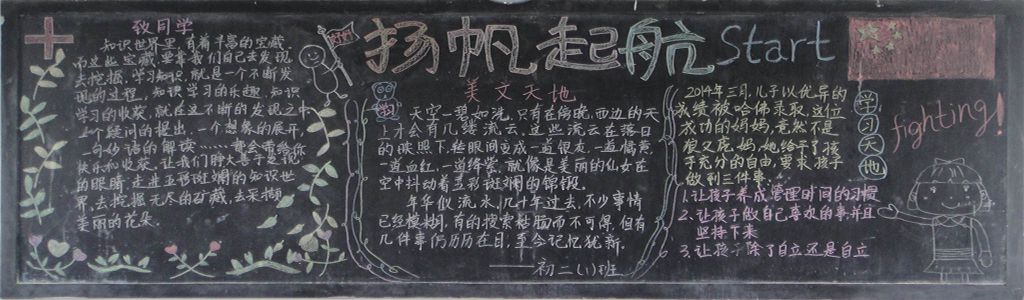 扬帆起航 Start
致同学
知识世界里,有着丰富的宝藏
而这些宝藏要靠我们自己去发现
去挖掘,学习知识,就是一个不断发
现的过程,知识学习的乐趣,知识
学习的收获,就在这不断的发现之中
一个疑问的提出,一个想象的展开,
一句妙语的解读……都会带给你
快乐和收获,让我们睁大善于发现
的眼睛,走进五彩斑斓的知识世
界,去挖掘无尽的宝藏,去采摘
美丽的花朵。
美文天地
天空一碧如洗,只有在傍晚,西边的天
上才会有几缕流云,这些流云在落日
的映照下,转眼间变成一道银灰,一道橘黄
一道血红,一道绛紫,就像是美丽的仙女在
空中抖动着五彩斑斓的锦锻。
年华似流水,几十年过去,不少事情
已经模糊,有的搜索枯肠而不可得,但有
几件事仍历历在目,至今记忆犹新。
——初二(1)班
学习天地
2014年三月,儿子以优异的
成绩被哈佛录取,这位
成功的妈妈,竟然不是
狼又虎妈,她给予了孩
子充分的自由,要求孩子
做到三件事
1.让孩子养成管理时间的习惯
2.让孩子做自己喜欢的事并且
坚持下来
3.让孩子除了自立还是自立
fighting!